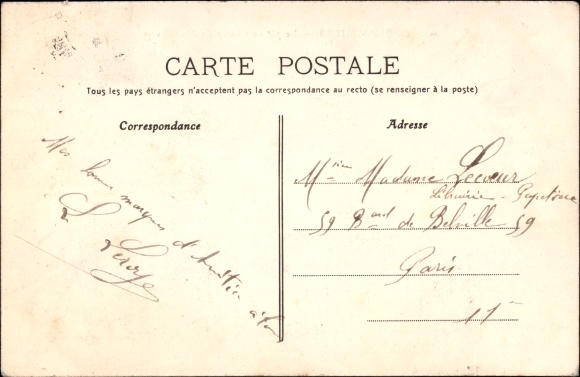 CARTE POSTALE
Tous les pays étrangers n'acceptent pas la correspondance au recto (se renseigner à la poste)
Correspondance
Adresse
Mes bonnes marques d'Amitiés à tous
L Leroy
Msieu Madame Lecoeur
Librairie - Papeterie
59 Bard de Belville 59
Paris
11e